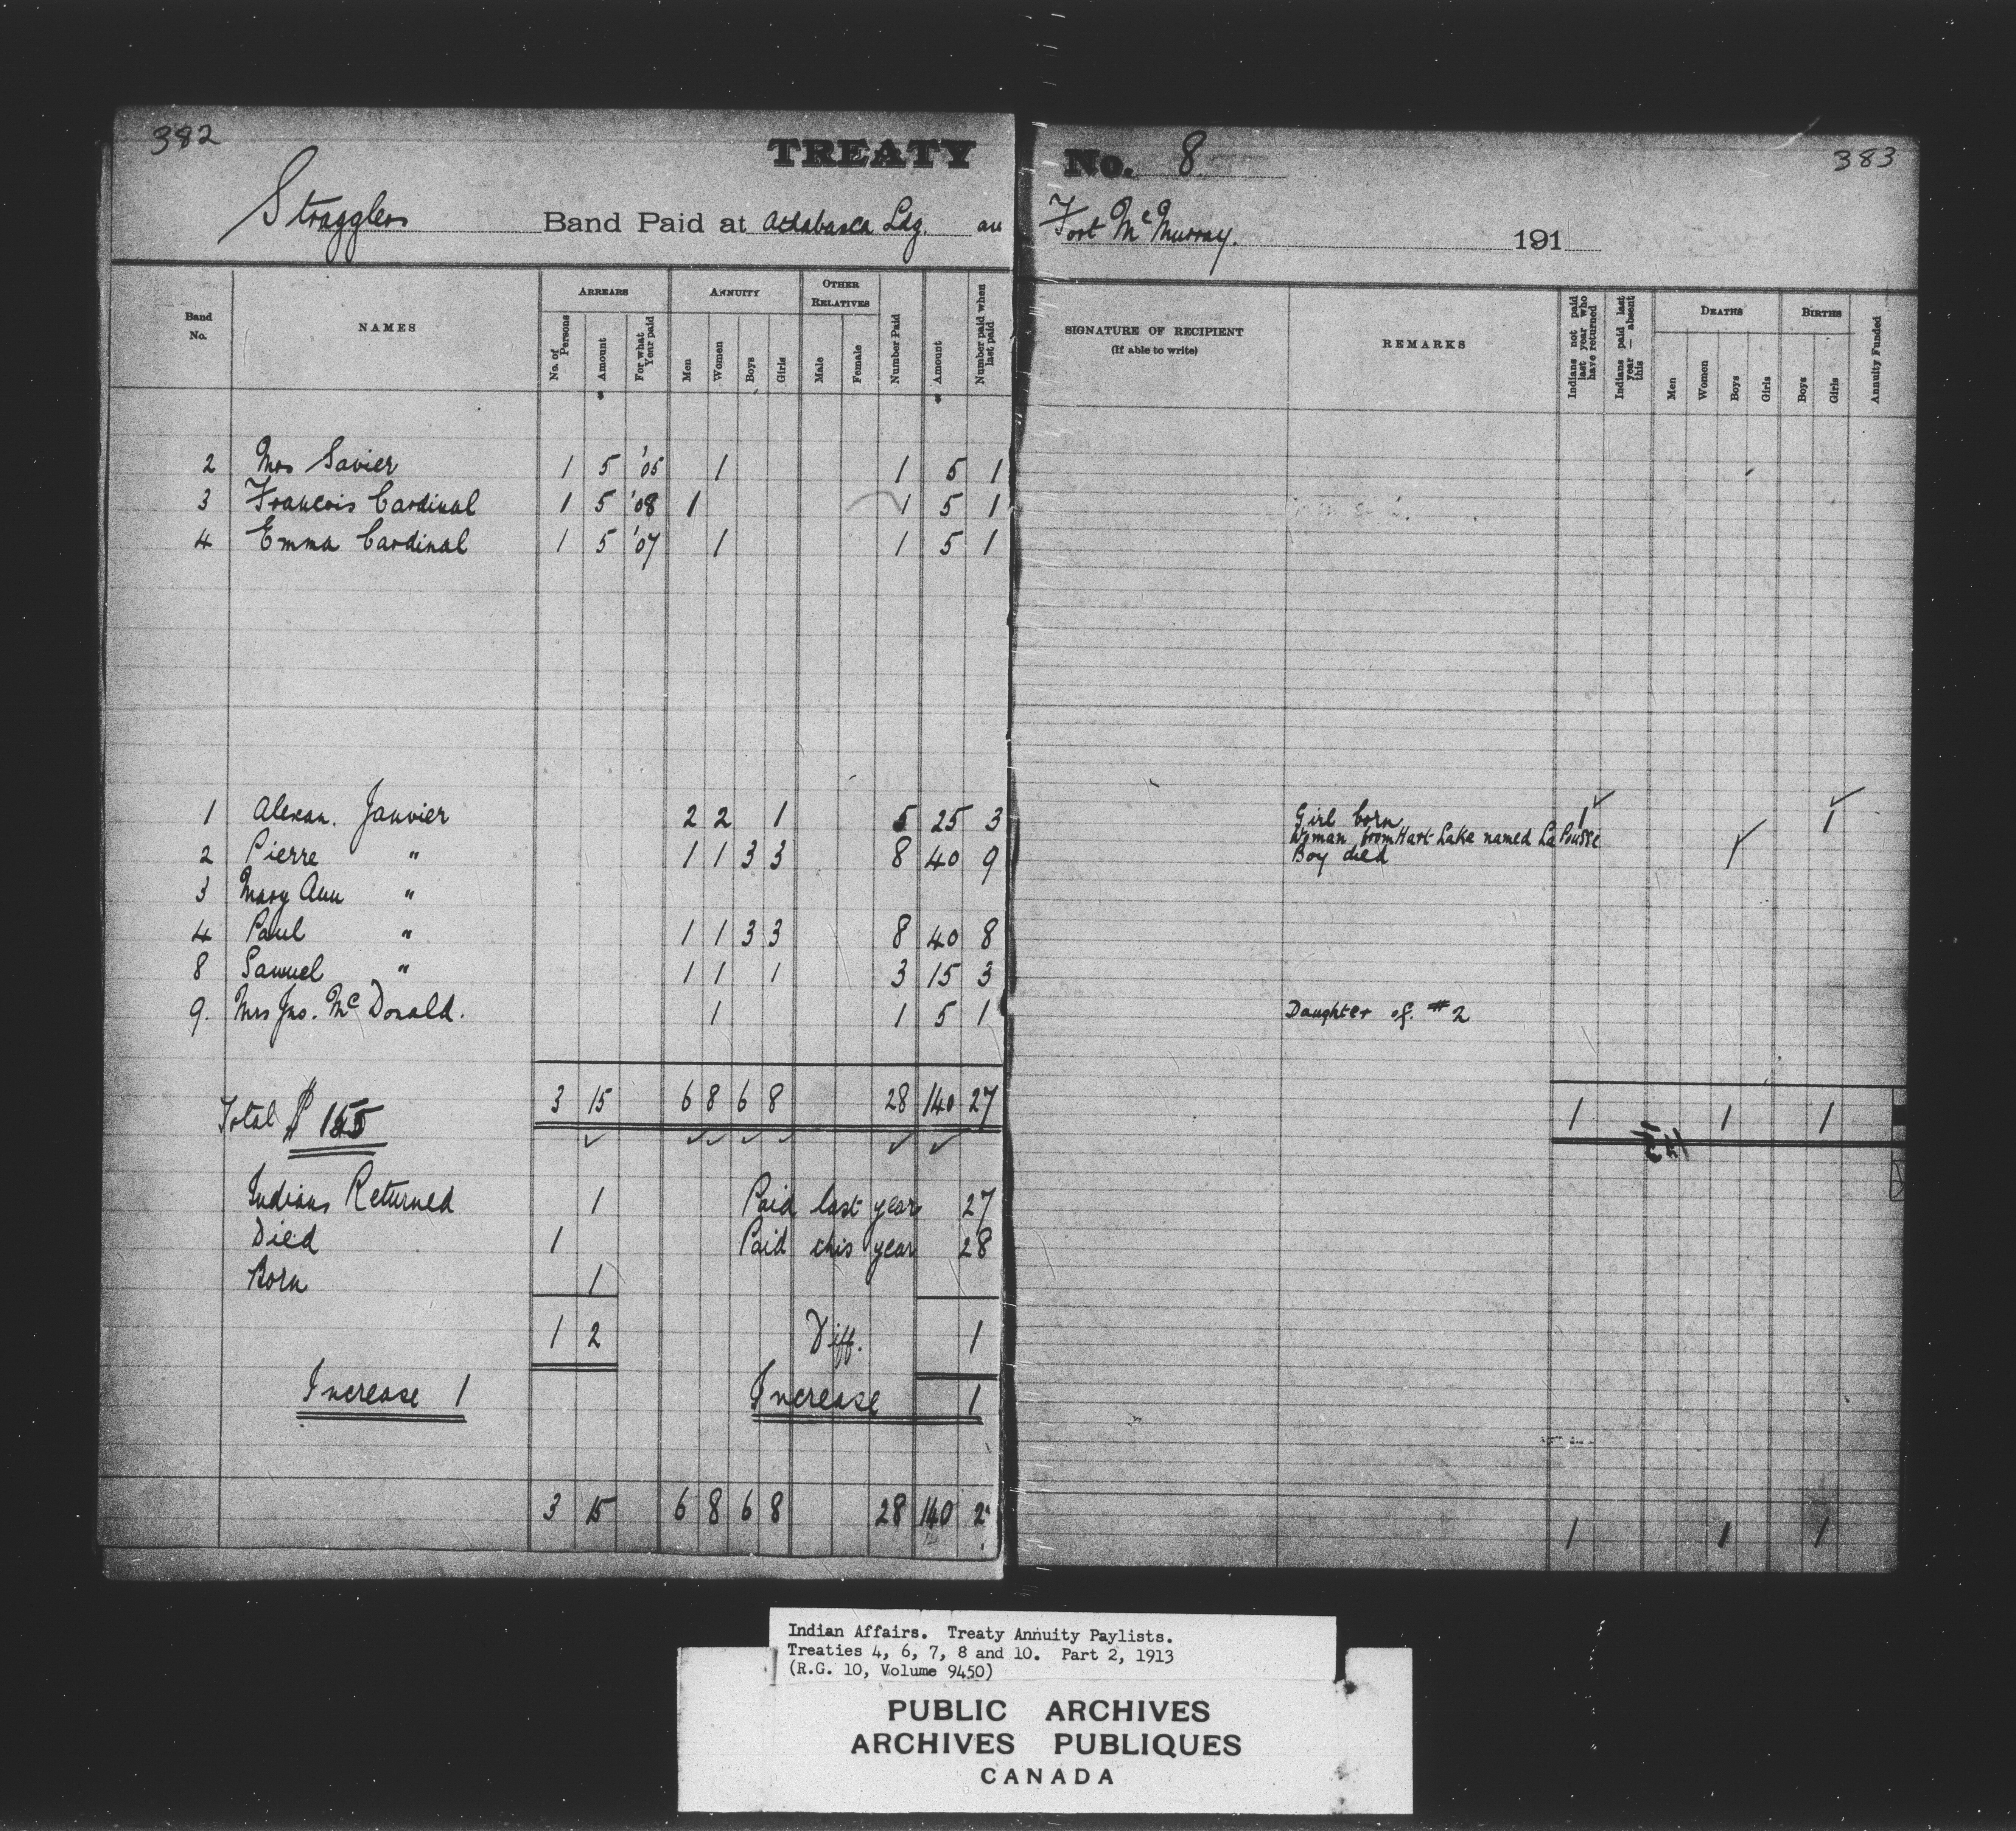 382
TREATY No. 8
383
Stragglers Band Paid at Athabasca Ldg. an Fort McMurray. 191
Band No.
NAMES
ARREARS
No. of Persons
Amount
For what Year paid
ANNUITY
Men
Women
Boys
Girls
OTHER RELATIVES
Male
Female
Number Paid
Amount
Number paid when last paid
SIGNATURE OF RECIPIENT
(If able to write)
REMARKS
Indians not paid last year who have returned
Indians paid last year — absent this
DEATHS
Men
Women
Boys
Girls
BIRTHS
Boys
Girls
Annuity Funded
2 Mrs Savier 1 5 '05 1 1 5 1
3 Francois Cardinal 1 5 '08 1 1 5 1
4 Emma Cardinal 1 5 '07 1 1 5 1
1 Alexan. Janvier 2 2 1 5 25 3 Girl born 1 1
Woman from Hart Lake named La Pousse
2 Pierre " 1 1 3 3 8 40 9 Boy died 1
3 Mary Ann "
4 Paul " 1 1 3 3 8 40 8
8 Samuel " 1 1 1 3 15 3
9. Mrs Jno. McDonald. 1 1 5 1 Daughter of #2
Total $155 3 15 6 8 6 8 28 140 27 1 1 1
Indians Returned 1 Paid last year 27
Died 1 Paid this year 28
Born 1
1 2 Diff. 1
Increase 1 Increase 1
3 15 6 8 6 8 28 140 2 1 1 1
Indian Affairs. Treaty Annuity Paylists.
Treaties 4, 6, 7, 8 and 10. Part 2, 1913
(R.G. 10, Volume 9450)
PUBLIC ARCHIVES
ARCHIVES PUBLIQUES
CANADA